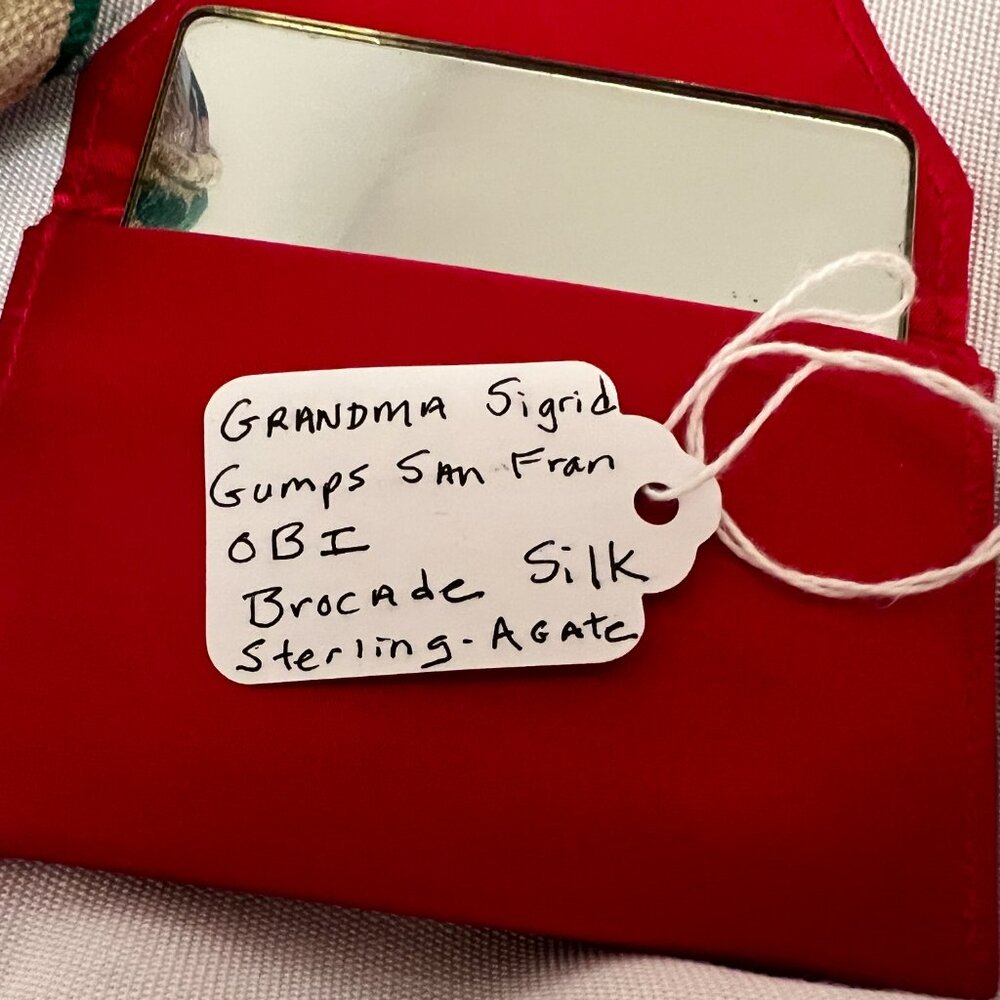 GRANDMA Sigrid
Gumps SAn Fran
OBI
BrocAde Silk
Sterling-AGAte